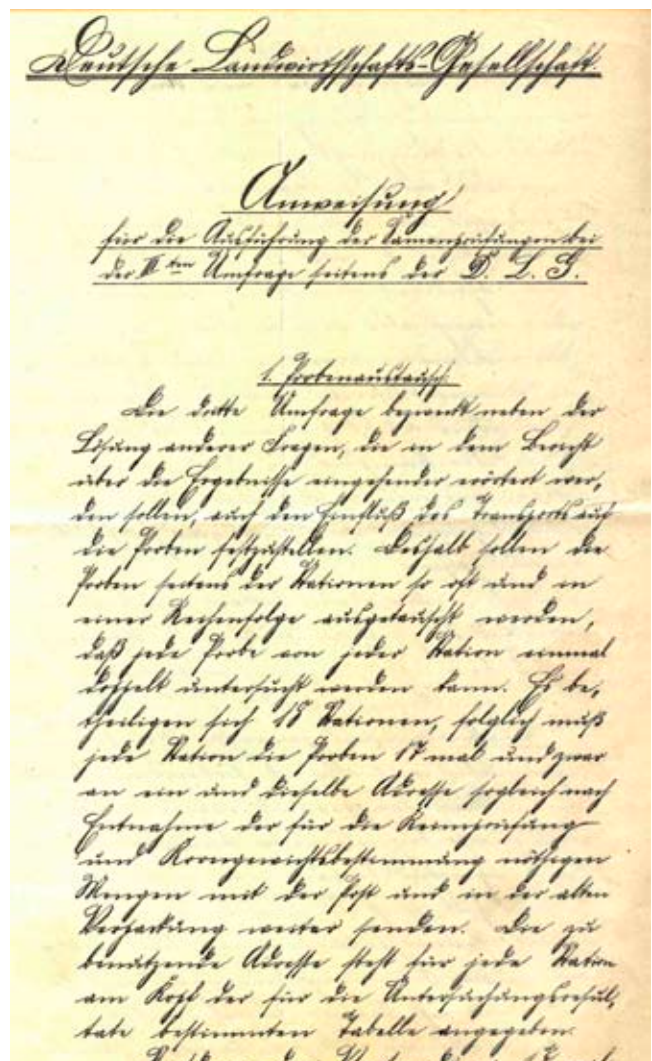 Deutsche Landwirthschafts-Gesellschaft.
Anweisung
für die Ausführung der Samenprüfungen bei
der III ten Umfrage seitens der D. L. G.
1. Probenaustausch.
Die dritte Umfrage bezweckt neben der
Lösung anderer Fragen, die in dem Bericht
über die Ergebnisse eingehender erörtert wer-
den sollen, auch den Einfluß des Transports auf
die Proben festzustellen. Deshalb sollen die
Proben seitens der Stationen so oft und in
einer Reihenfolge ausgetauscht werden,
daß jede Probe von jeder Station einmal
doppelt untersucht werden kann. Es be-
theiligen sich 18 Stationen, folglich muß
jede Station die Proben 17 mal und zwar
an ein und dieselbe Adresse sogleich nach
Entnahme der für die Keimprüfung
und Korngewichtsbestimmung nöthigen
Mengen mit der Post und in der alten
Verpackung weiter senden. Die zu
benutzende Adresse steht für jede Station
am Kopf der für die Untersuchungsresul-
tate bestimmten Tabelle angegeben.